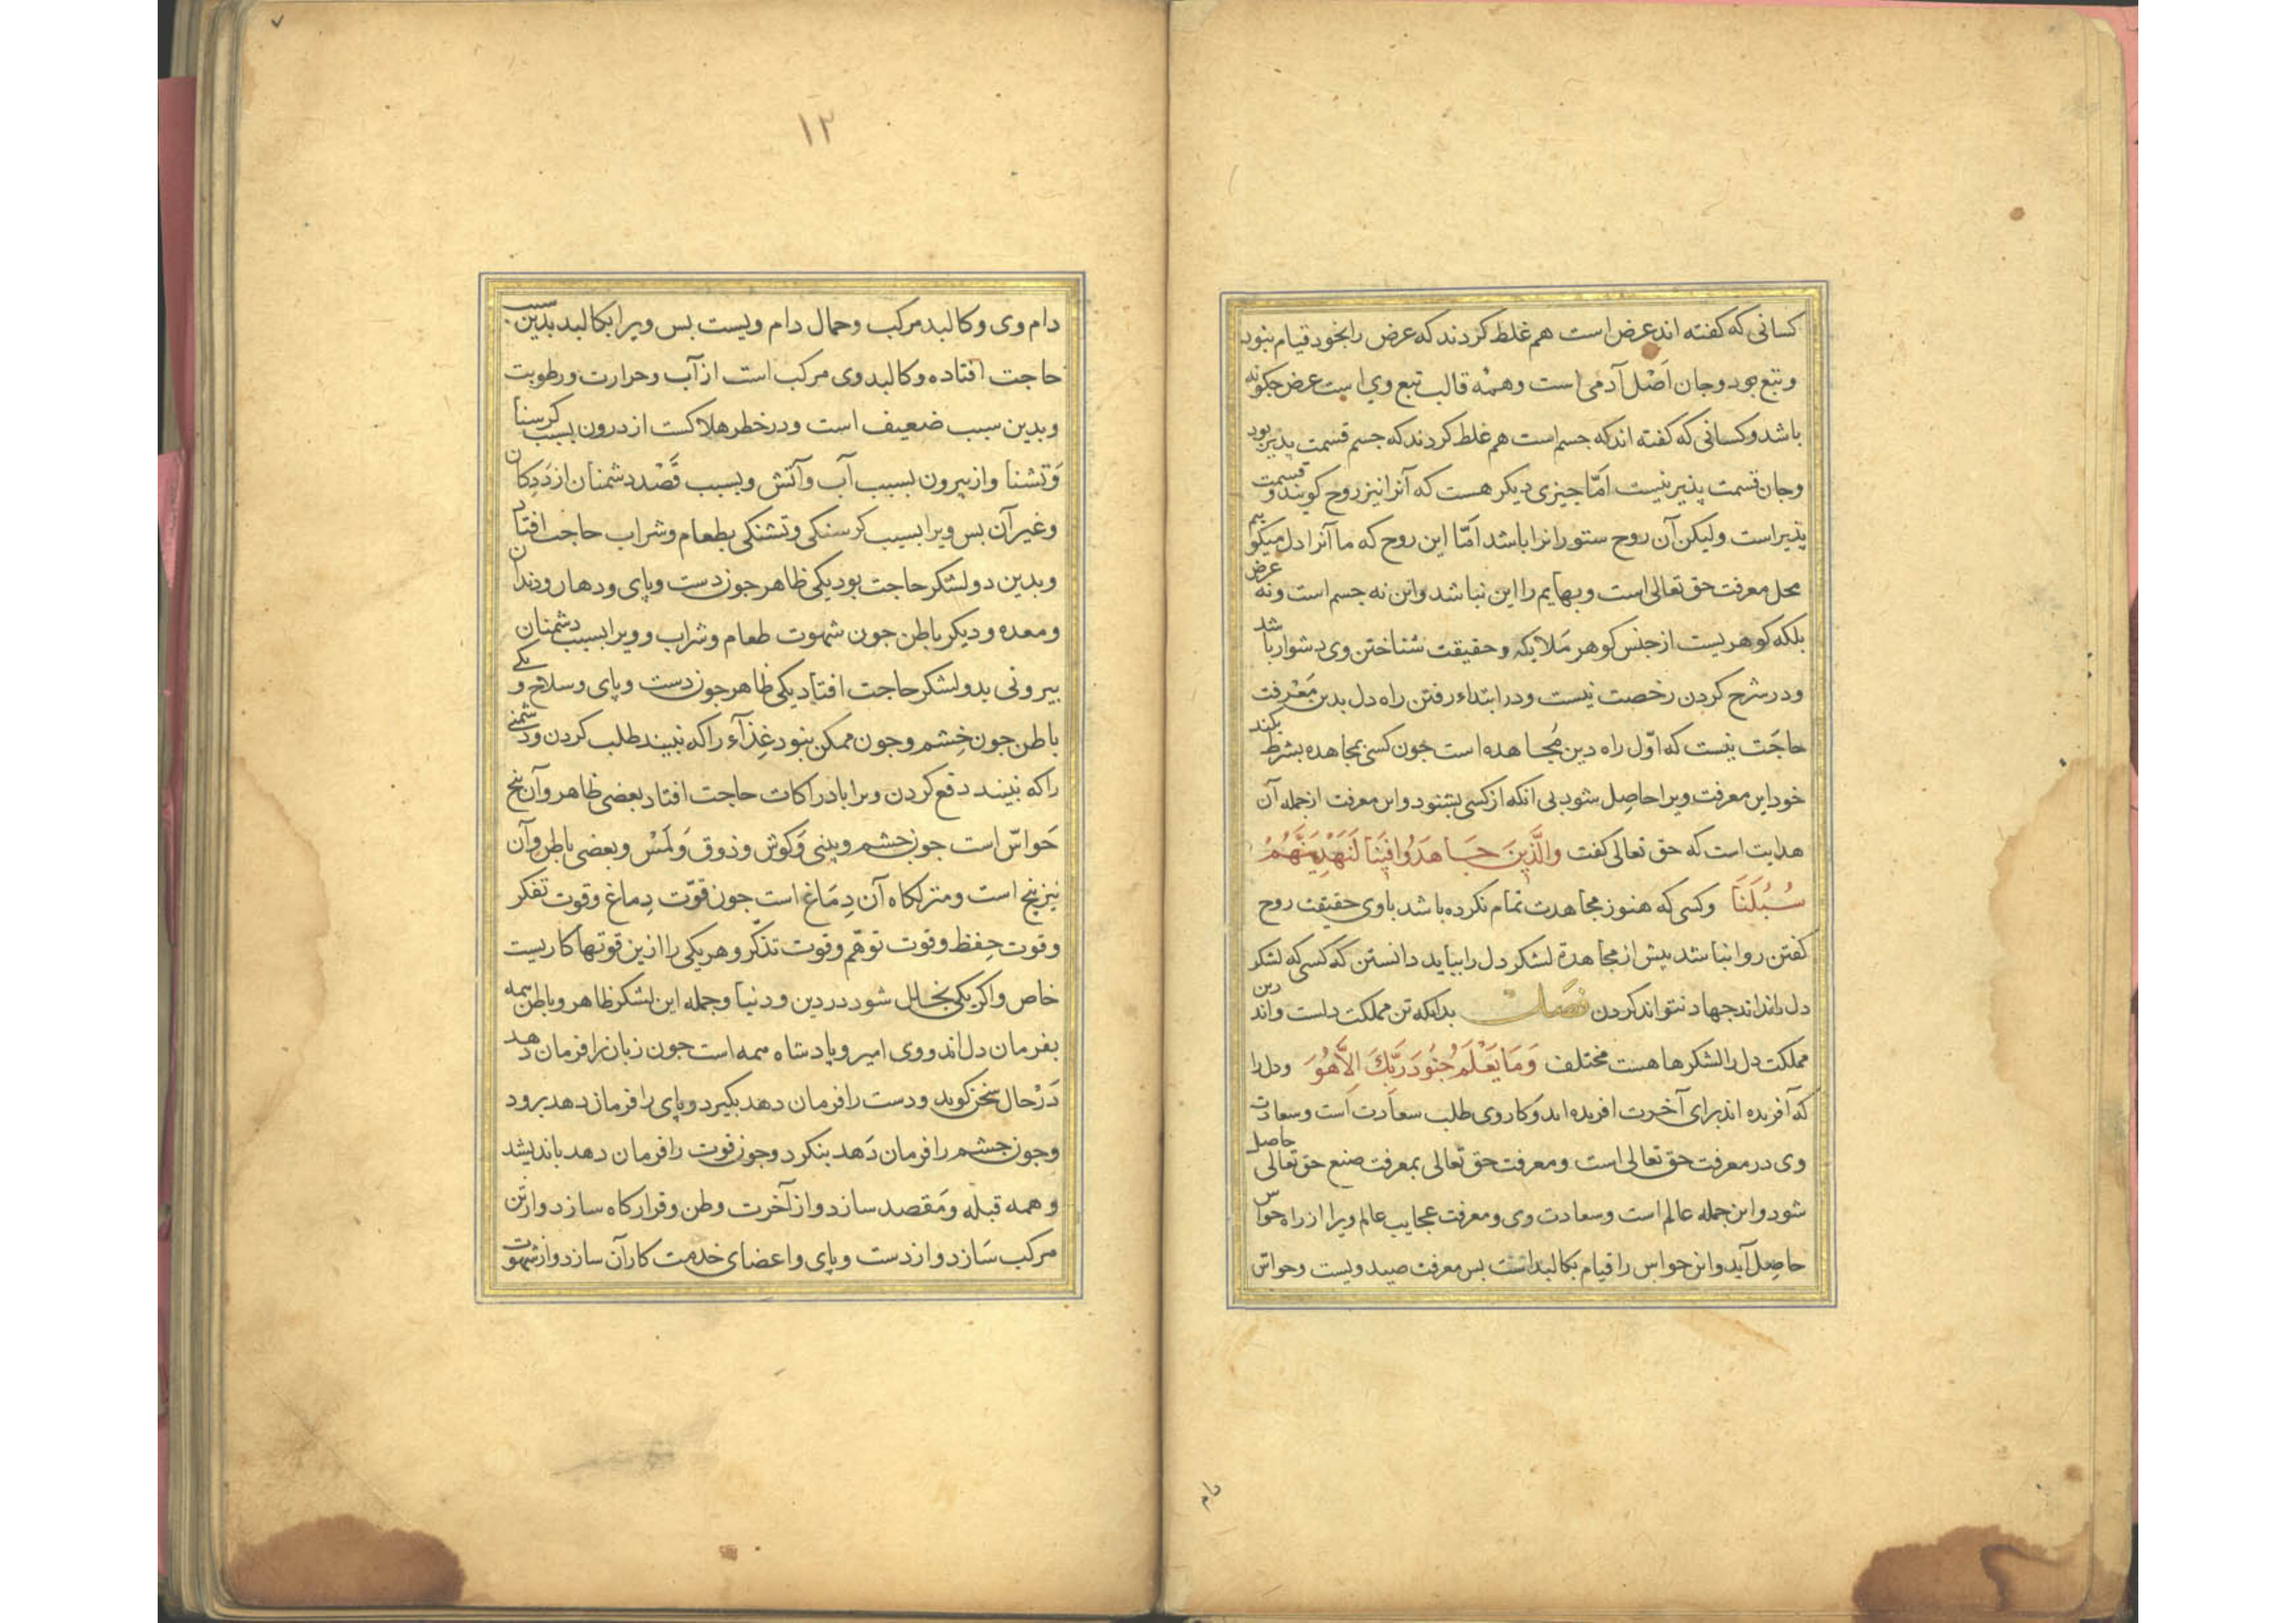 کسانی که کفته اند عرض است هم غلط کردند که عرض را بخود قیام نبود
و تبع بود و جان اَصْل آدمی است و همه قالب تبع وی است عرض جکونه
باشد و کسانی که کفته اند که جسم است هم غلط کردند که جسم قسمت پذیر بود
و جان قسمت پذیر نیست امّا جیزی دیکر هست که آنرا نیز روح کویند و قسمت
پذیر است ولیکن آن روح ستورانرا باشد امّا این روح که ما آنرا دل میکوییم
محل معرفت حق تعالی است و بهایم را این نباشد و این نه جسم است و نه عرض
بلکه کوهریست از جنس کوهر مَلایکه و حقیقت شناختن وی دشوار باشد
و در شرح کردن رخصت نیست و در ابتداء رفتن راه دل بدین مَعْرفت
حاجَت نیست که اوّل راه دین مُجاهده است جون کسی مجاهده بشرط بکند
خود این معرفت ویرا حاصِل شود بی انکه از کسی بشنود و این معرفت از جمله آن
هدایت است که حق تعالی کفت وَالَّذِینَ جَاهَدُوا فِینَا لَنَهْدِیَنَّهُمْ
سُبُلَنَا وکسی که هنوز مجاهدت تمام نکرده باشد باوی حقیقت روح
کفتن روا نباشد پیش از مجاهدة لشکر دل را بباید دانستن که کسی که لشکر
دل نداند جهاد نتواند کردن فصل بدانکه تن مملکت دلست و اندرین
مملکت دل را لشکرها هست مختلف وَمَا یَعْلَمُ جُنُودَ رَبِّكَ اِلَّا هُوَ و دل را
که آفریده اند برای آخرت افریده اند و کار وی طلب سعادت است و سعادت
وی در معرفت حق تعالی است و معرفت حق تعالی بمعرفت صنع حق تعالی حاصل
شود و این جمله عالم است و سعادت وی و معرفت عجایب عالم ویرا از راه حواس
حاصِل آید و این حواس را قیام بکالبد است بس معرفت صید ویست و حواسّ
دام
١٢
دام وی و کالبد مرکب و حمال دام ویست بس ویرا بکالبد بدین سبب
حاجت افتاده و کالبد وی مرکب است از آب و حرارت و رطوبت
و بدین سبب ضعیف است و در خطر هلاکست از درون بسبب کرسنا
وَ تشنا و از بیرون بسبب آب و آتش و بسبب قَصْد دشمنان از دَدکان
و غیر آن بس ویرا بسبب کرسنکی و تشنکی بطعام و شراب حاجت افتاد
و بدین دو لشکر حاجت بود یکی ظاهر جون دست و پای و دهان و دندان
و معده و دیکر باطن جون شهوت طعام و شراب و ویرا بسبب دشمنان
بیرونی بدو لشکر حاجت افتاد یکی ظاهر جون دست و پای و سلاح و یکی
باطن جون خِشم و جون ممکن نبود غِذآء را که نبیند طلب کردن و دشمنی
را که نبیند دفع کردن ویرا بادراکات حاجت افتاد بعضی ظاهر و آن پنج
حَواسّ است جون جشم و بینی وَ کوش و ذوق وَ لَمْس و بعضی باطن و آن
نیز پنج است و منزلکاه آن دِمَاغ است جون قوّت دِماغ و قوت تفکر
و قوت حِفظ و قوت توهّم و قوت تذکّر و هر یکی را ازین قوتها کاریست
خاص و اکر یکی بخلل شود در دین و دنیا و جمله این لشکر ظاهر و باطن همه
بفرمان دل اند و وی امیر و پادشاه همه است جون زبان را فرمان دهد
دَرْحال سَخن کوید و دست را فرمان دهد بکیرد و پای را فرمان دهد برود
و جون جشم را فرمان دَهد بنکرد و جون قوت را فرمان دهد باندیشد
و همه قبله و مَقصد سازد و از آخرت وطن و قرارکاه سازد و از تن
مرکب سَازد و از دست و پای و اعضای خدمت کار آن سازد و از شهوت